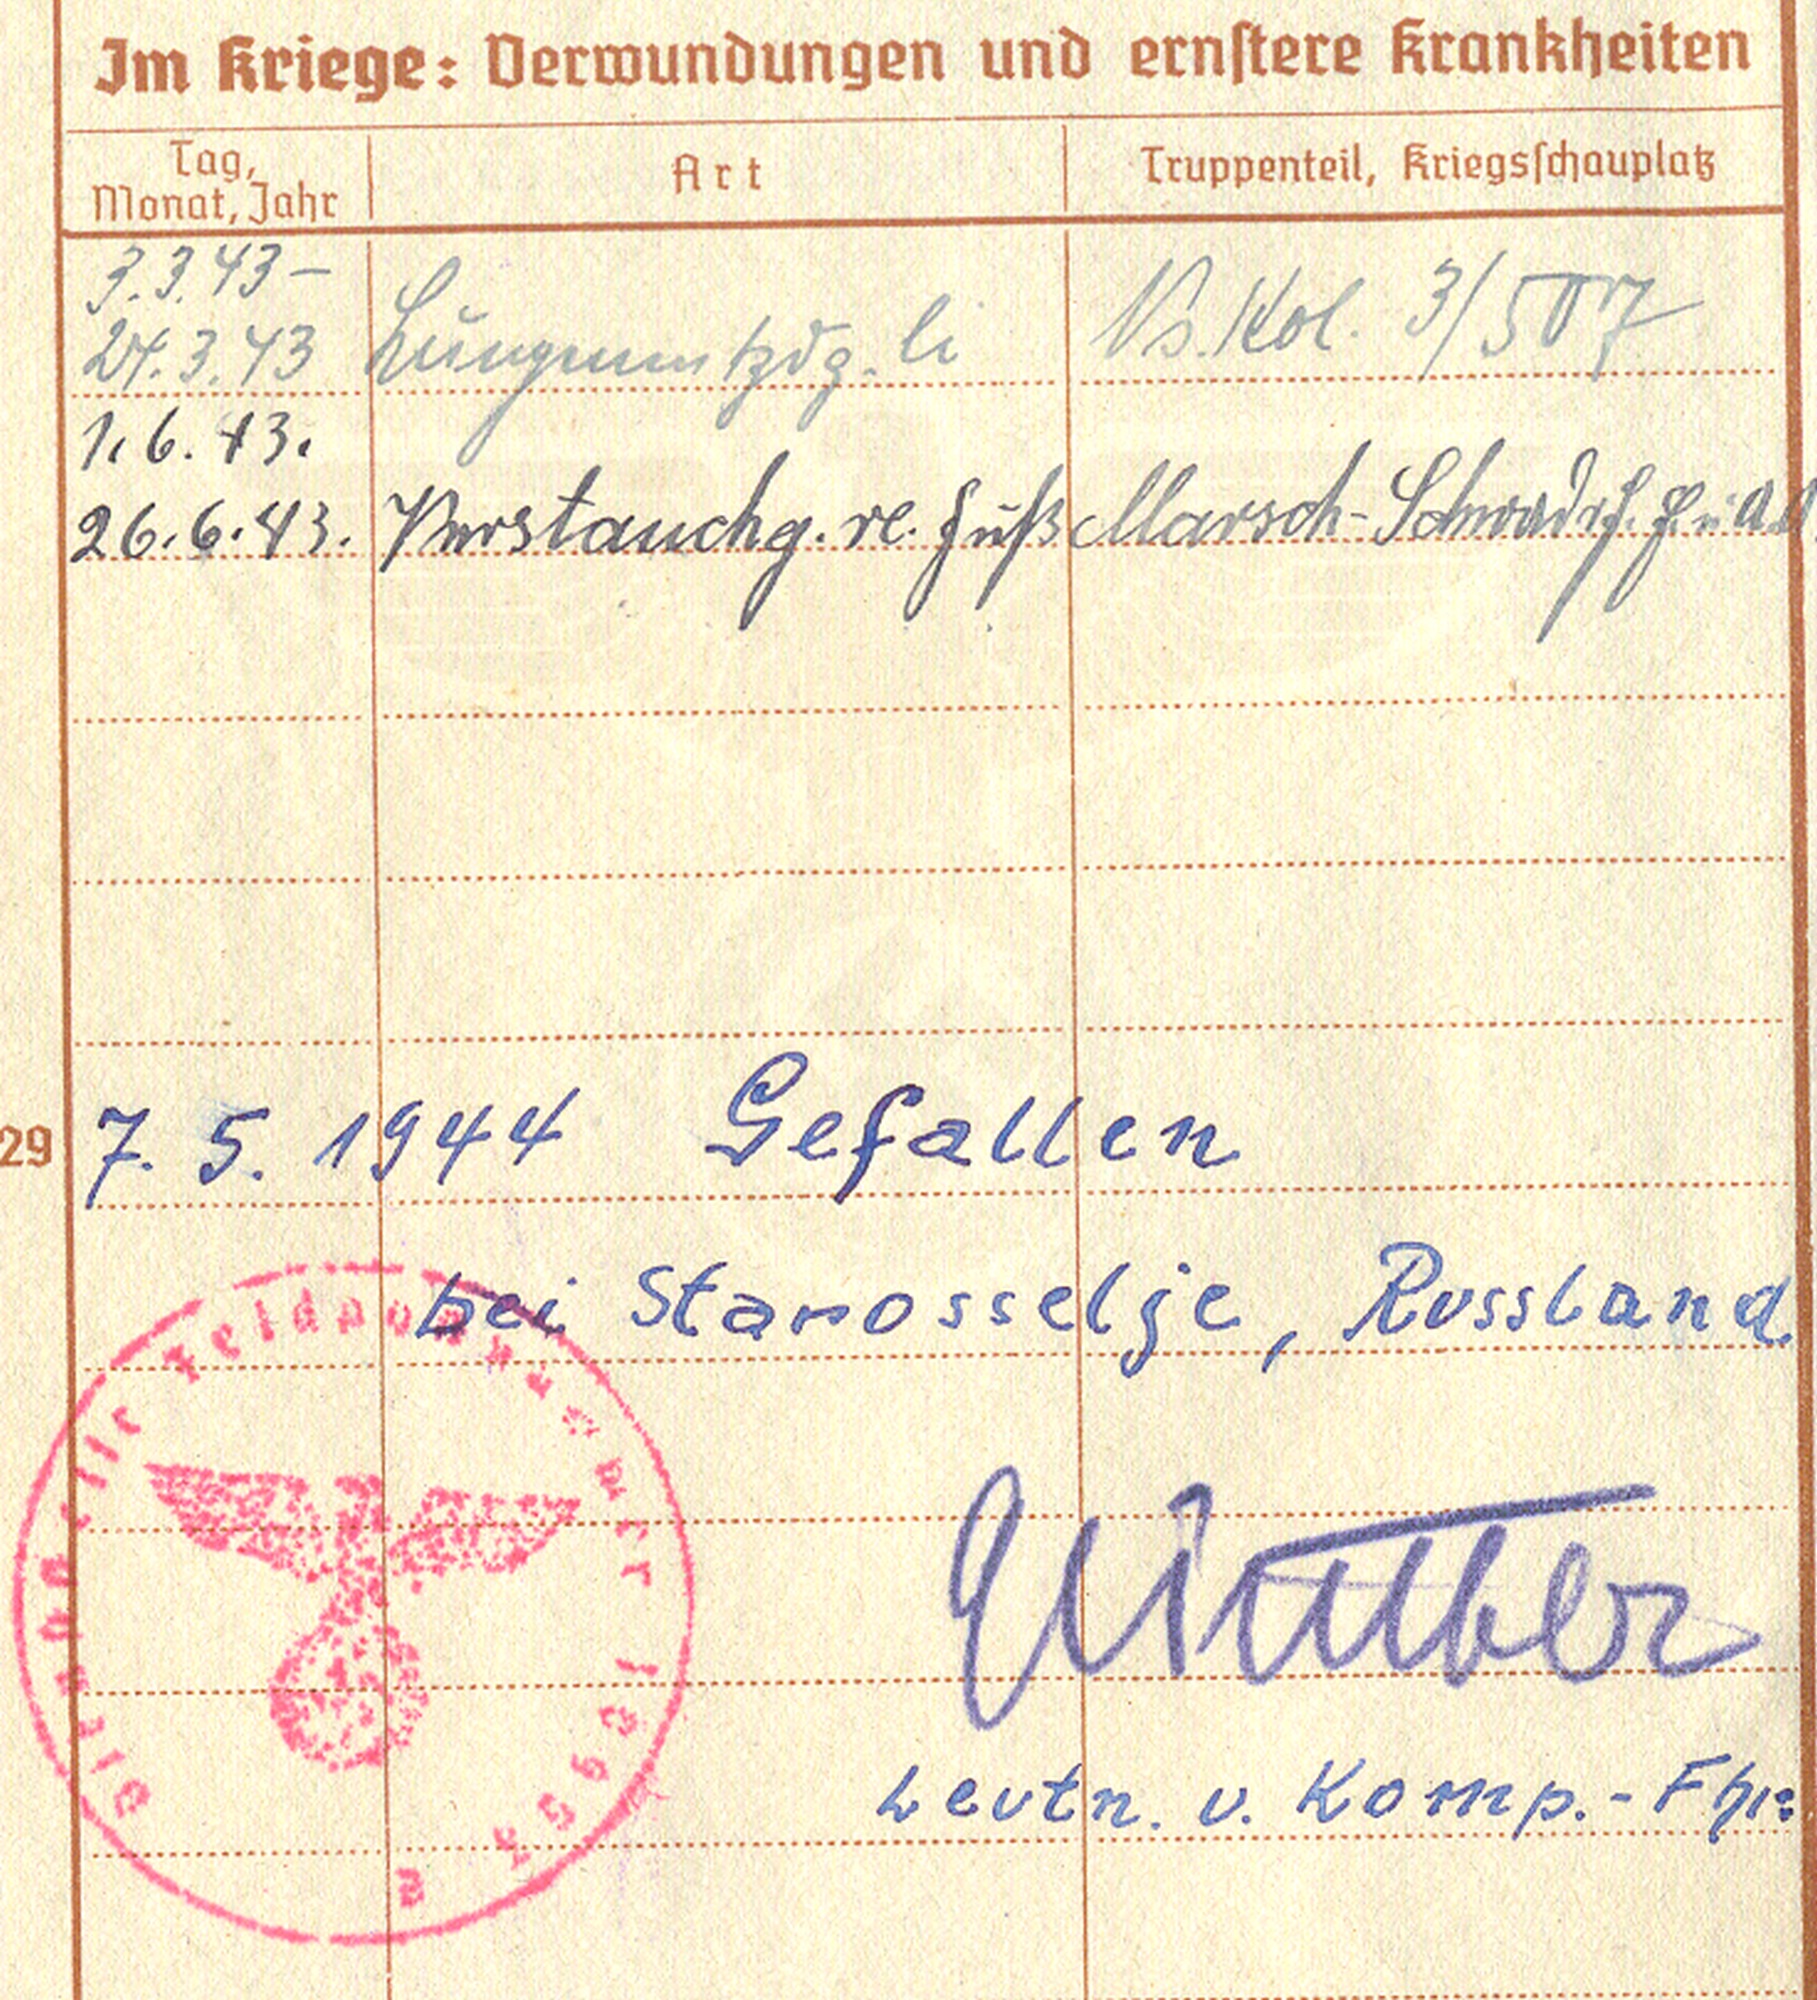 Im Kriege: Verwundungen und ernstere Krankheiten
Tag, Monat, Jahr
Art
Truppenteil, Kriegsschauplatz
3.3.43 –
24.3.43 Lungenentzdg. li Ns. Kol. 3/507
1.6.43.
26.6.43. Verstauchg. re. Fuß Marsch-Schwadr.
29
7.5.1944 Gefallen
bei Starosselje, Russland
Leutn. u. Komp.-Fhr.
Dienststelle Feldpostnummer